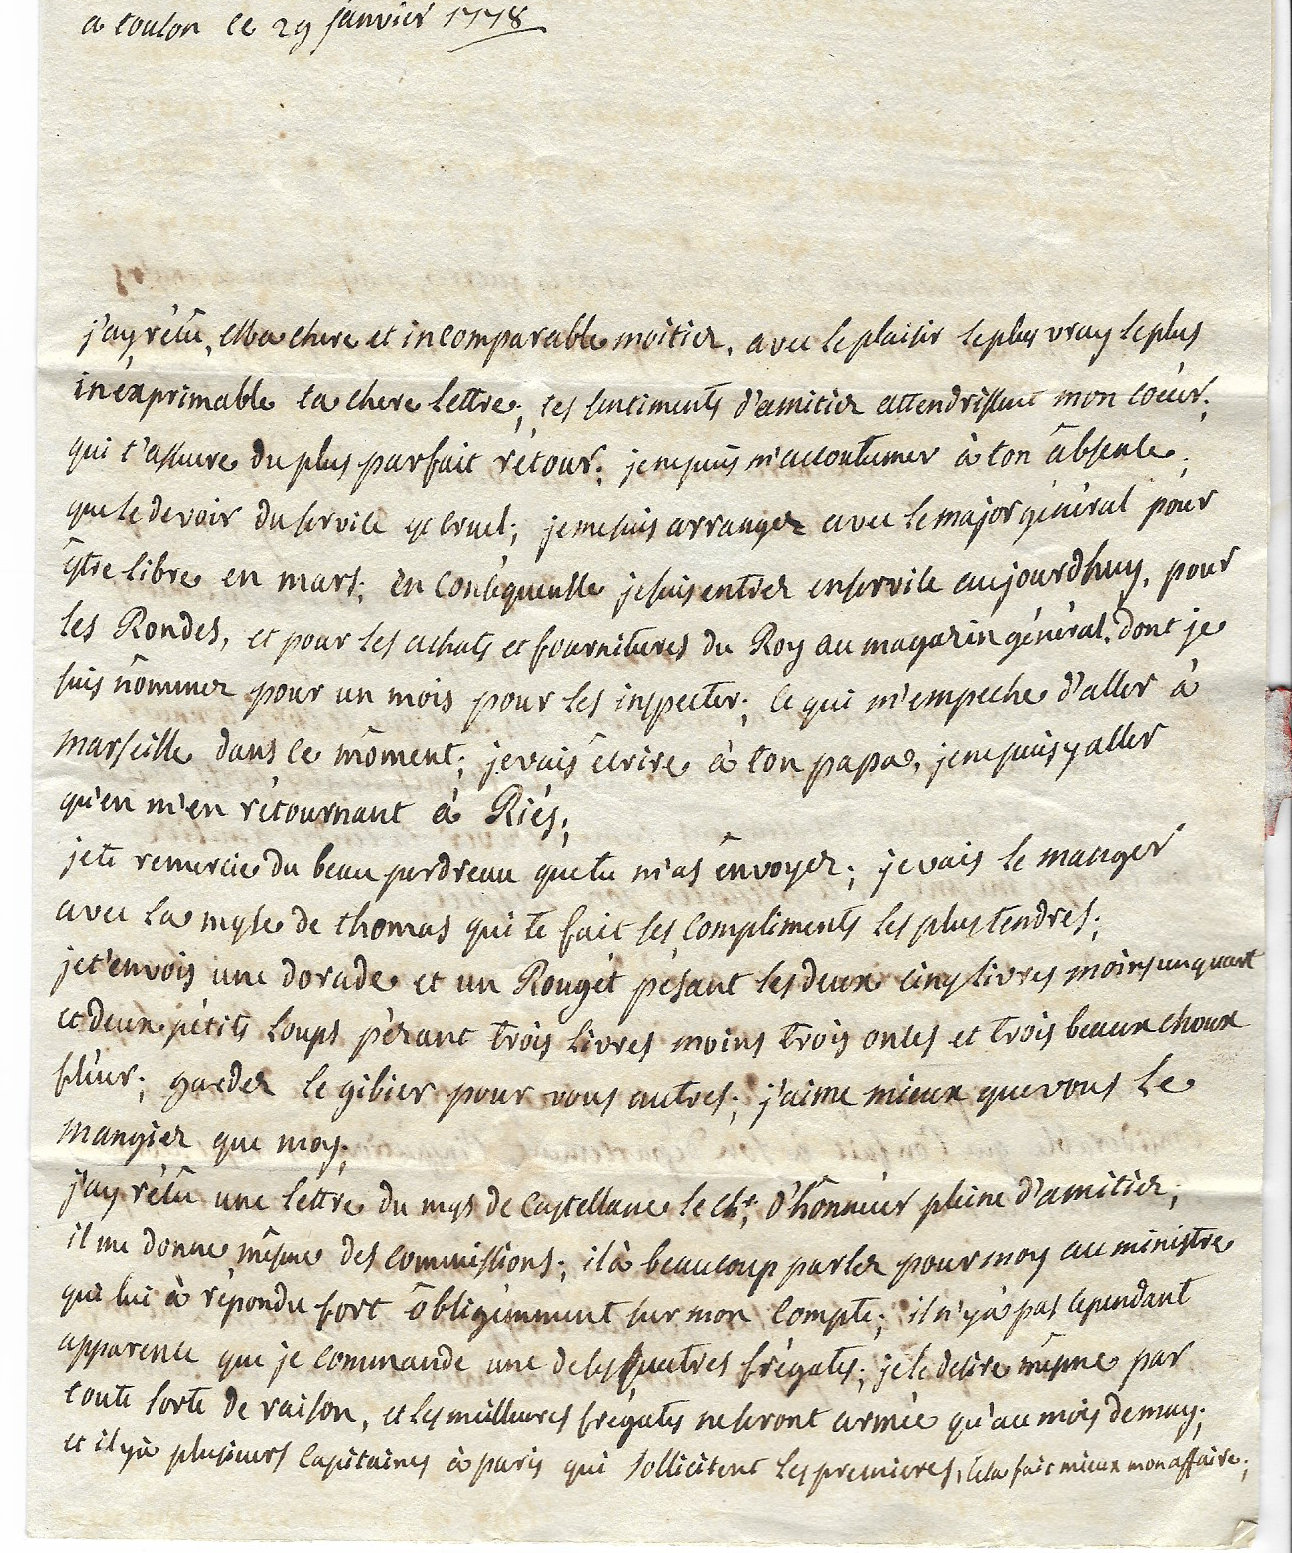 a toulon ce 29 janvier 1778
j'ay récû, Ma chere et incomparable moitiez, avec le plaisir le plus vray le plus
inéxprimable ta chere lettre; tes sentiments d'amitiez attendrissent mon coeur;
qui t'assure du plus parfait rétour; je ne puis m'accoutumer à ton âbsence;
que le devoir du service est cruel; je me suis arrangez avec le major général pour
être libre en mars; en conséquence je suis entrez en service aujourdhuy, pour
les Rondes, et pour les achats et fournitures du Roy au magazin général, dont je
suis nômmez pour un mois pour les inspecter; ce qui m'empeche d'aller à
marseille dans ce môment; je vais êcrire à ton papa, je ne puis y aller
qu'en m'en rétournant à Riés;
je te remercie du beau perdreau que tu m'as ênvoyez; je vais le manger
avec la myse de thomas qui te fait ses compliments les plus tendres;
je t'envois une dorade et un Rougét pésant les deux cinq livres moins un quart
et deux pétits loups pézant trois livres moins trois onces et trois beaux choux
fléur; gardez le gibier pour vous autres; j'aime mieux que vous le
mangiez que moy;
j'ay récû une lettre du mys de Castellane le chr. d'hônnéur pleine d'amitiez;
il me donne mêsme des commissions; il à beaucoup parlez pour moy au ministre
qui lui à répondu fort ôbligémment sur mon compte; il n'y à pas cependant
apparence que je commande une de ses quatres frégates; je le desire mêsme par
toute sorte de raison, et les meilleures frégates ne seront armée qu'au mois de may;
et il y à plusieurs capitaines à paris qui sollicitent les premieres, cela fait mieux mon affaire;